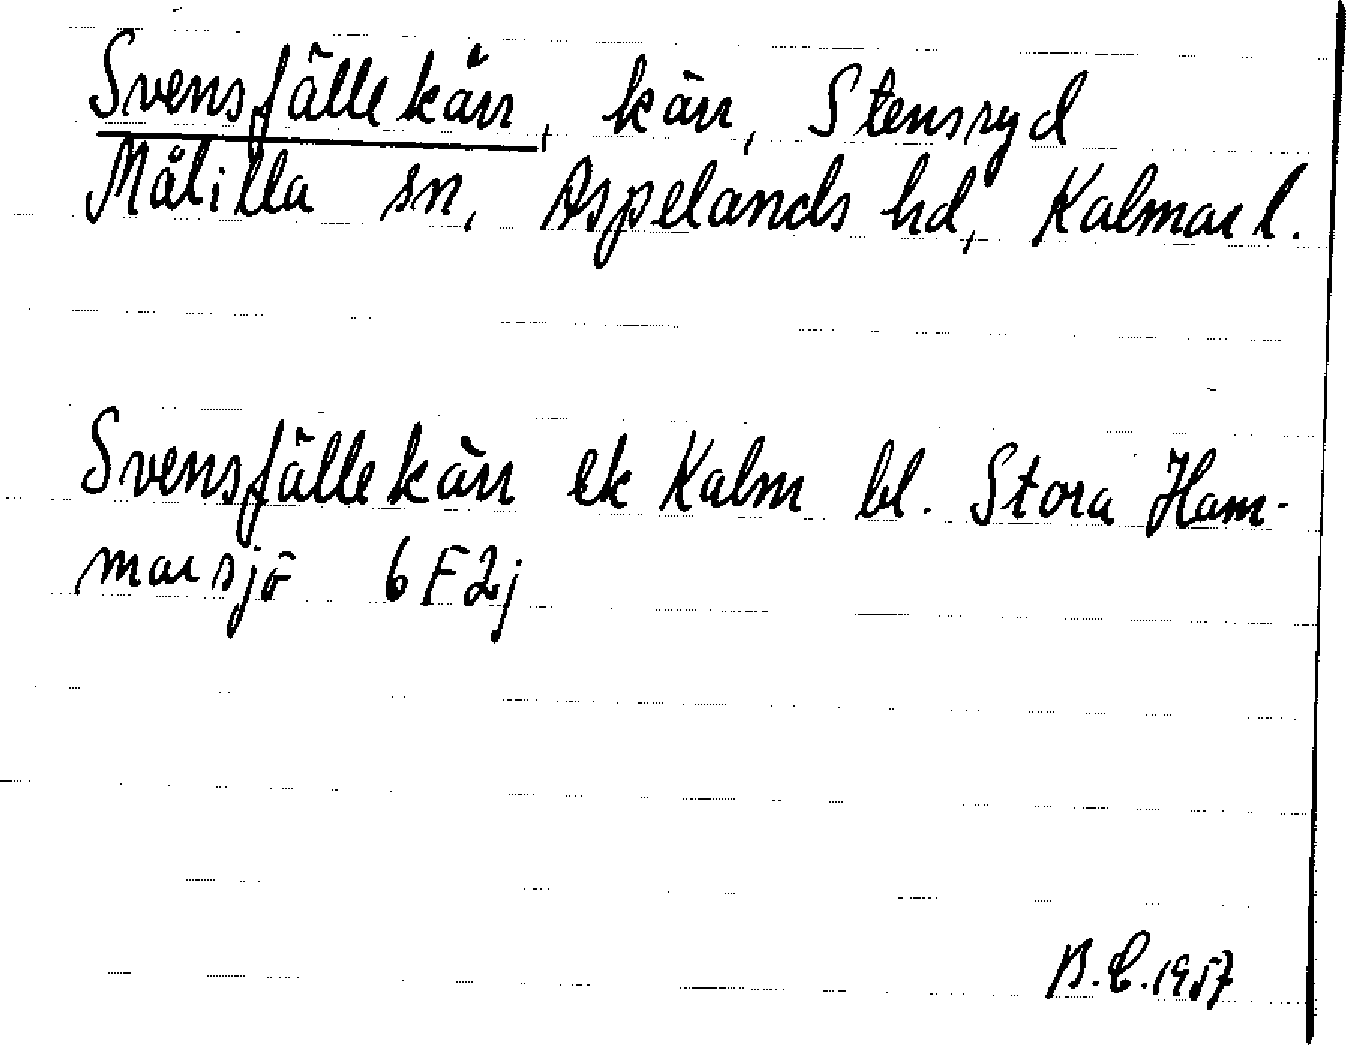 Svensfällekärr, kärr, Stensryd
Målilla sn, Aspelands hd, Kalmar l.
Svensfällekärr ek Kalm bl. Stora Ham-
marsjö 6F2j
B.E.1957